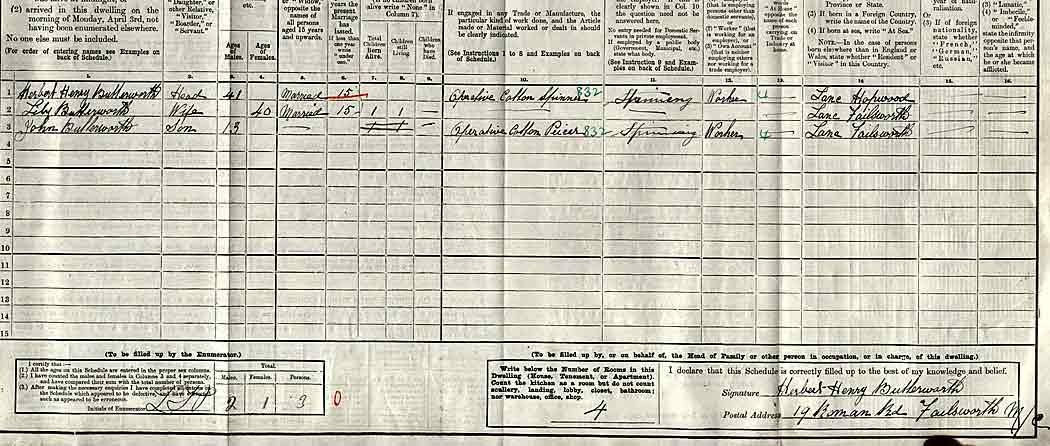 (2) arrived in this dwelling on the morning of Monday, April 3rd, not having been enumerated elsewhere.
No one else must be included.
(For order of entering names see Examples on back of Schedule.)
"Daughter," or other Relative, "Visitor," "Boarder," or "Servant."
etc.
Ages of Males.
Ages of Females.
or "Widow," opposite the names of all persons aged 15 years and upwards.
years the present Marriage has lasted. If less than one year write "under one."
write "None" in Column 7).
Total Children Born Alive.
Children still Living.
Children who have Died.
If engaged in any Trade or Manufacture, the particular kind of work done, and the Article made or Material worked or dealt in should be clearly indicated.
(See Instructions 1 to 8 and Examples on back of Schedule.)
clearly shown in Col. 10 the question need not be answered here.
No entry needed for Domestic Servants in private employment.
If employed by a public body (Government, Municipal, etc.) state what body.
(See Instruction 9 and Examples on back of Schedule.)
(that is employing persons other than domestic servants), (2) "Worker" (that is working for an employer), or (3) "Own Account" (that is neither employing others nor working for a trade employer).
Province or State.
(2) If born in a Foreign Country, write the name of the Country.
(3) If born at sea, write "At Sea."
NOTE.—In the case of persons born elsewhere than in England or Wales, state whether "Resident" or "Visitor" in this Country.
(3) If of foreign nationality, state whether "French," "German," "Russian," etc.
(2) "Blind,"
(3) "Lunatic,"
(4) "Imbecile," or "Feeble-minded," state the infirmity opposite that person's name, and the age at which he or she became afflicted.
1 Herbert Henry Butterworth Head 41 Married 15 Operative Cotton Spinner 832 Spinning Worker 4 Lanc Hopwood
2 Wife 40 Married 15 1 1 — Lanc Failsworth
3 John Butterworth Son 13 Operative Cotton Piecer 832 Spinning Worker 4 Lanc Failsworth
4
5
6
7
8
9
10
11
12
13
14
15
(To be filled up by the Enumerator.)
I certify that:—
(1.) All the ages on this Schedule are entered in the proper sex columns.
(2.) I have counted the males and females in Columns 3 and 4 separately, and have compared their sum with the total number of persons.
(3.) After making the necessary enquiries I have completed all entries on the Schedule which appeared to be defective, and have corrected such as appeared to be erroneous.
Initials of Enumerator
Total.
Males. Females. Persons.
2 1 3 0
(To be filled up by, or on behalf of, the Head of Family or other person in occupation, or in charge, of this dwelling.)
Write below the Number of Rooms in this
Dwelling (House, Tenement, or Apartment).
Count the kitchen as a room but do not count
scullery, landing, lobby, closet, bathroom;
nor warehouse, office, shop.
4
I declare that this Schedule is correctly filled up to the best of my knowledge and belief.
Signature Herbert Henry Butterworth
Postal Address 19 Roman Rd Failsworth M/c